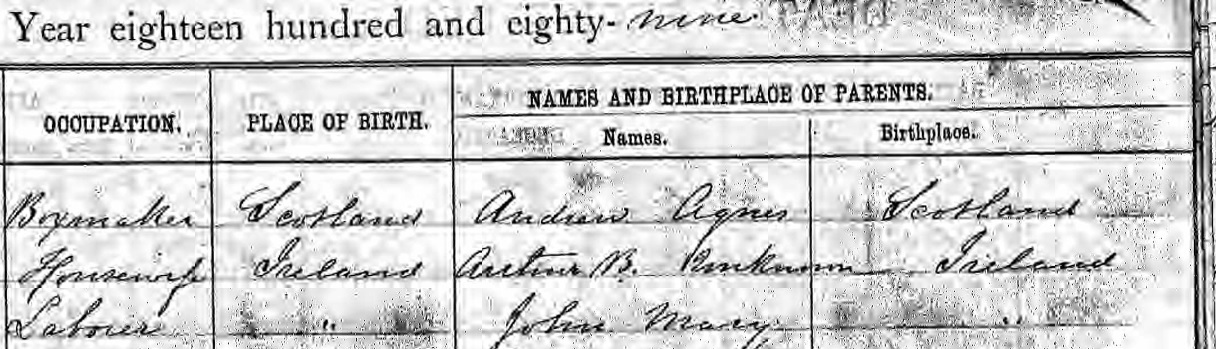 Year eighteen hundred and eighty- nine
OCCUPATION. PLACE OF BIRTH. NAMES AND BIRTHPLACE OF PARENTS.
Names. Birthplace.
Boxmaker Scotland Andrew Agnes Scotland
Housewife Ireland Arthur B. Unknown Ireland
Laborer " John Mary "